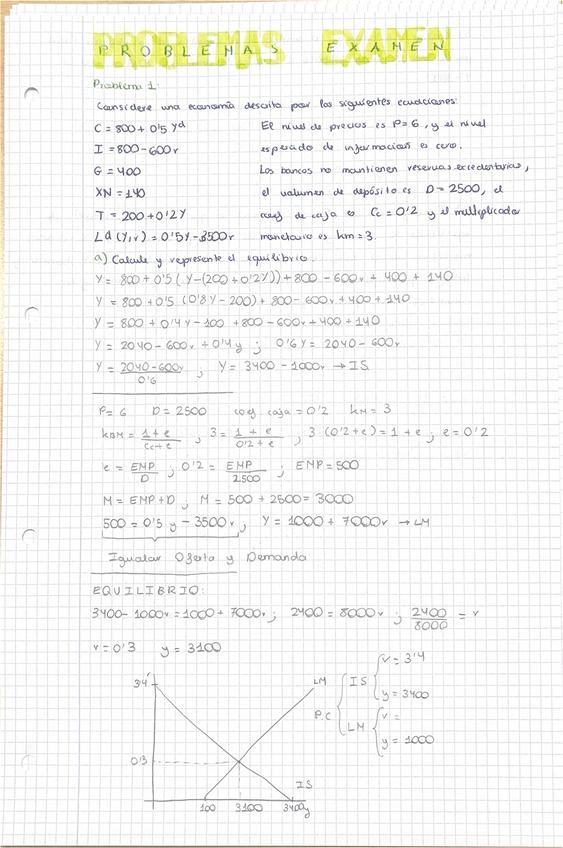 PROBLEMAS EXAMEN
Problema 1:
Considere una economía descrita por las siguientes ecuaciones:
C = 800 + 0'5 Yd
I = 800 - 600r
G = 400
XN = 140
T = 200 + 0'2Y
Ld (Y,r) = 0'5Y - 3500r
El nivel de precios es P=6, y el nivel
esperado de informacion es cero.
Los bancos no mantienen reservas excedentarias,
el volumen de depósito es D = 2500, el
coef de caja es Cc = 0'2 y el multiplicador
monetario es km = 3.
a) Calcule y represente el equilibrio.
Y = 800 + 0'5 (Y - (200 + 0'2Y)) + 800 - 600r + 400 + 140
Y = 800 + 0'5 (0'8Y - 200) + 800 - 600r + 400 + 140
Y = 800 + 0'4Y - 100 + 800 - 600r + 400 + 140
Y = 2040 - 600r + 0'4y ; 0'6Y = 2040 - 600r
Y = 2040-600r / 0'6 ; Y = 3400 - 1000r → IS
P = 6 D = 2500 coef caja = 0'2 KM = 3
kBM = 1+e / Cc+e ; 3 = 1+e / 0'2+e ; 3·(0'2+e) = 1+e ; e = 0'2
e = EMP / D ; 0'2 = EMP / 2500 ; EMP = 500
M = EMP + D ; M = 500 + 2500 = 3000
500 = 0'5 y - 3500r ; Y = 1000 + 7000r → LM
Igualar Oferta y Demanda
EQUILIBRIO:
3400 - 1000r = 1000 + 7000r ; 2400 = 8000r ; 2400 / 8000 = r
r = 0'3 y = 3100
34'
LM
0'3
IS
100 3100 3400 y
P.C
IS
r = 3'4
y = 3400
LM
r =
y = 1000